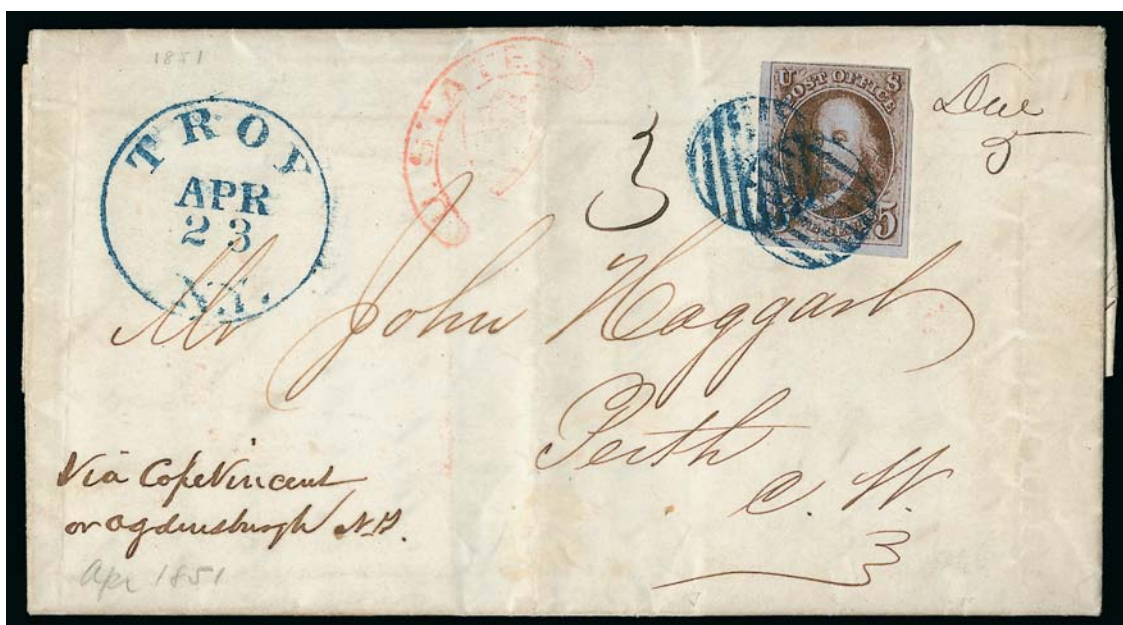 1851
TROY
APR
23
N.Y.
U. STATES
3
U S
POST OFFICE
5
Due
5
Mr John Haggart
Perth
C. W.
Via Cape Vincent
or Ogdensburgh N.Y.
Apr 1851